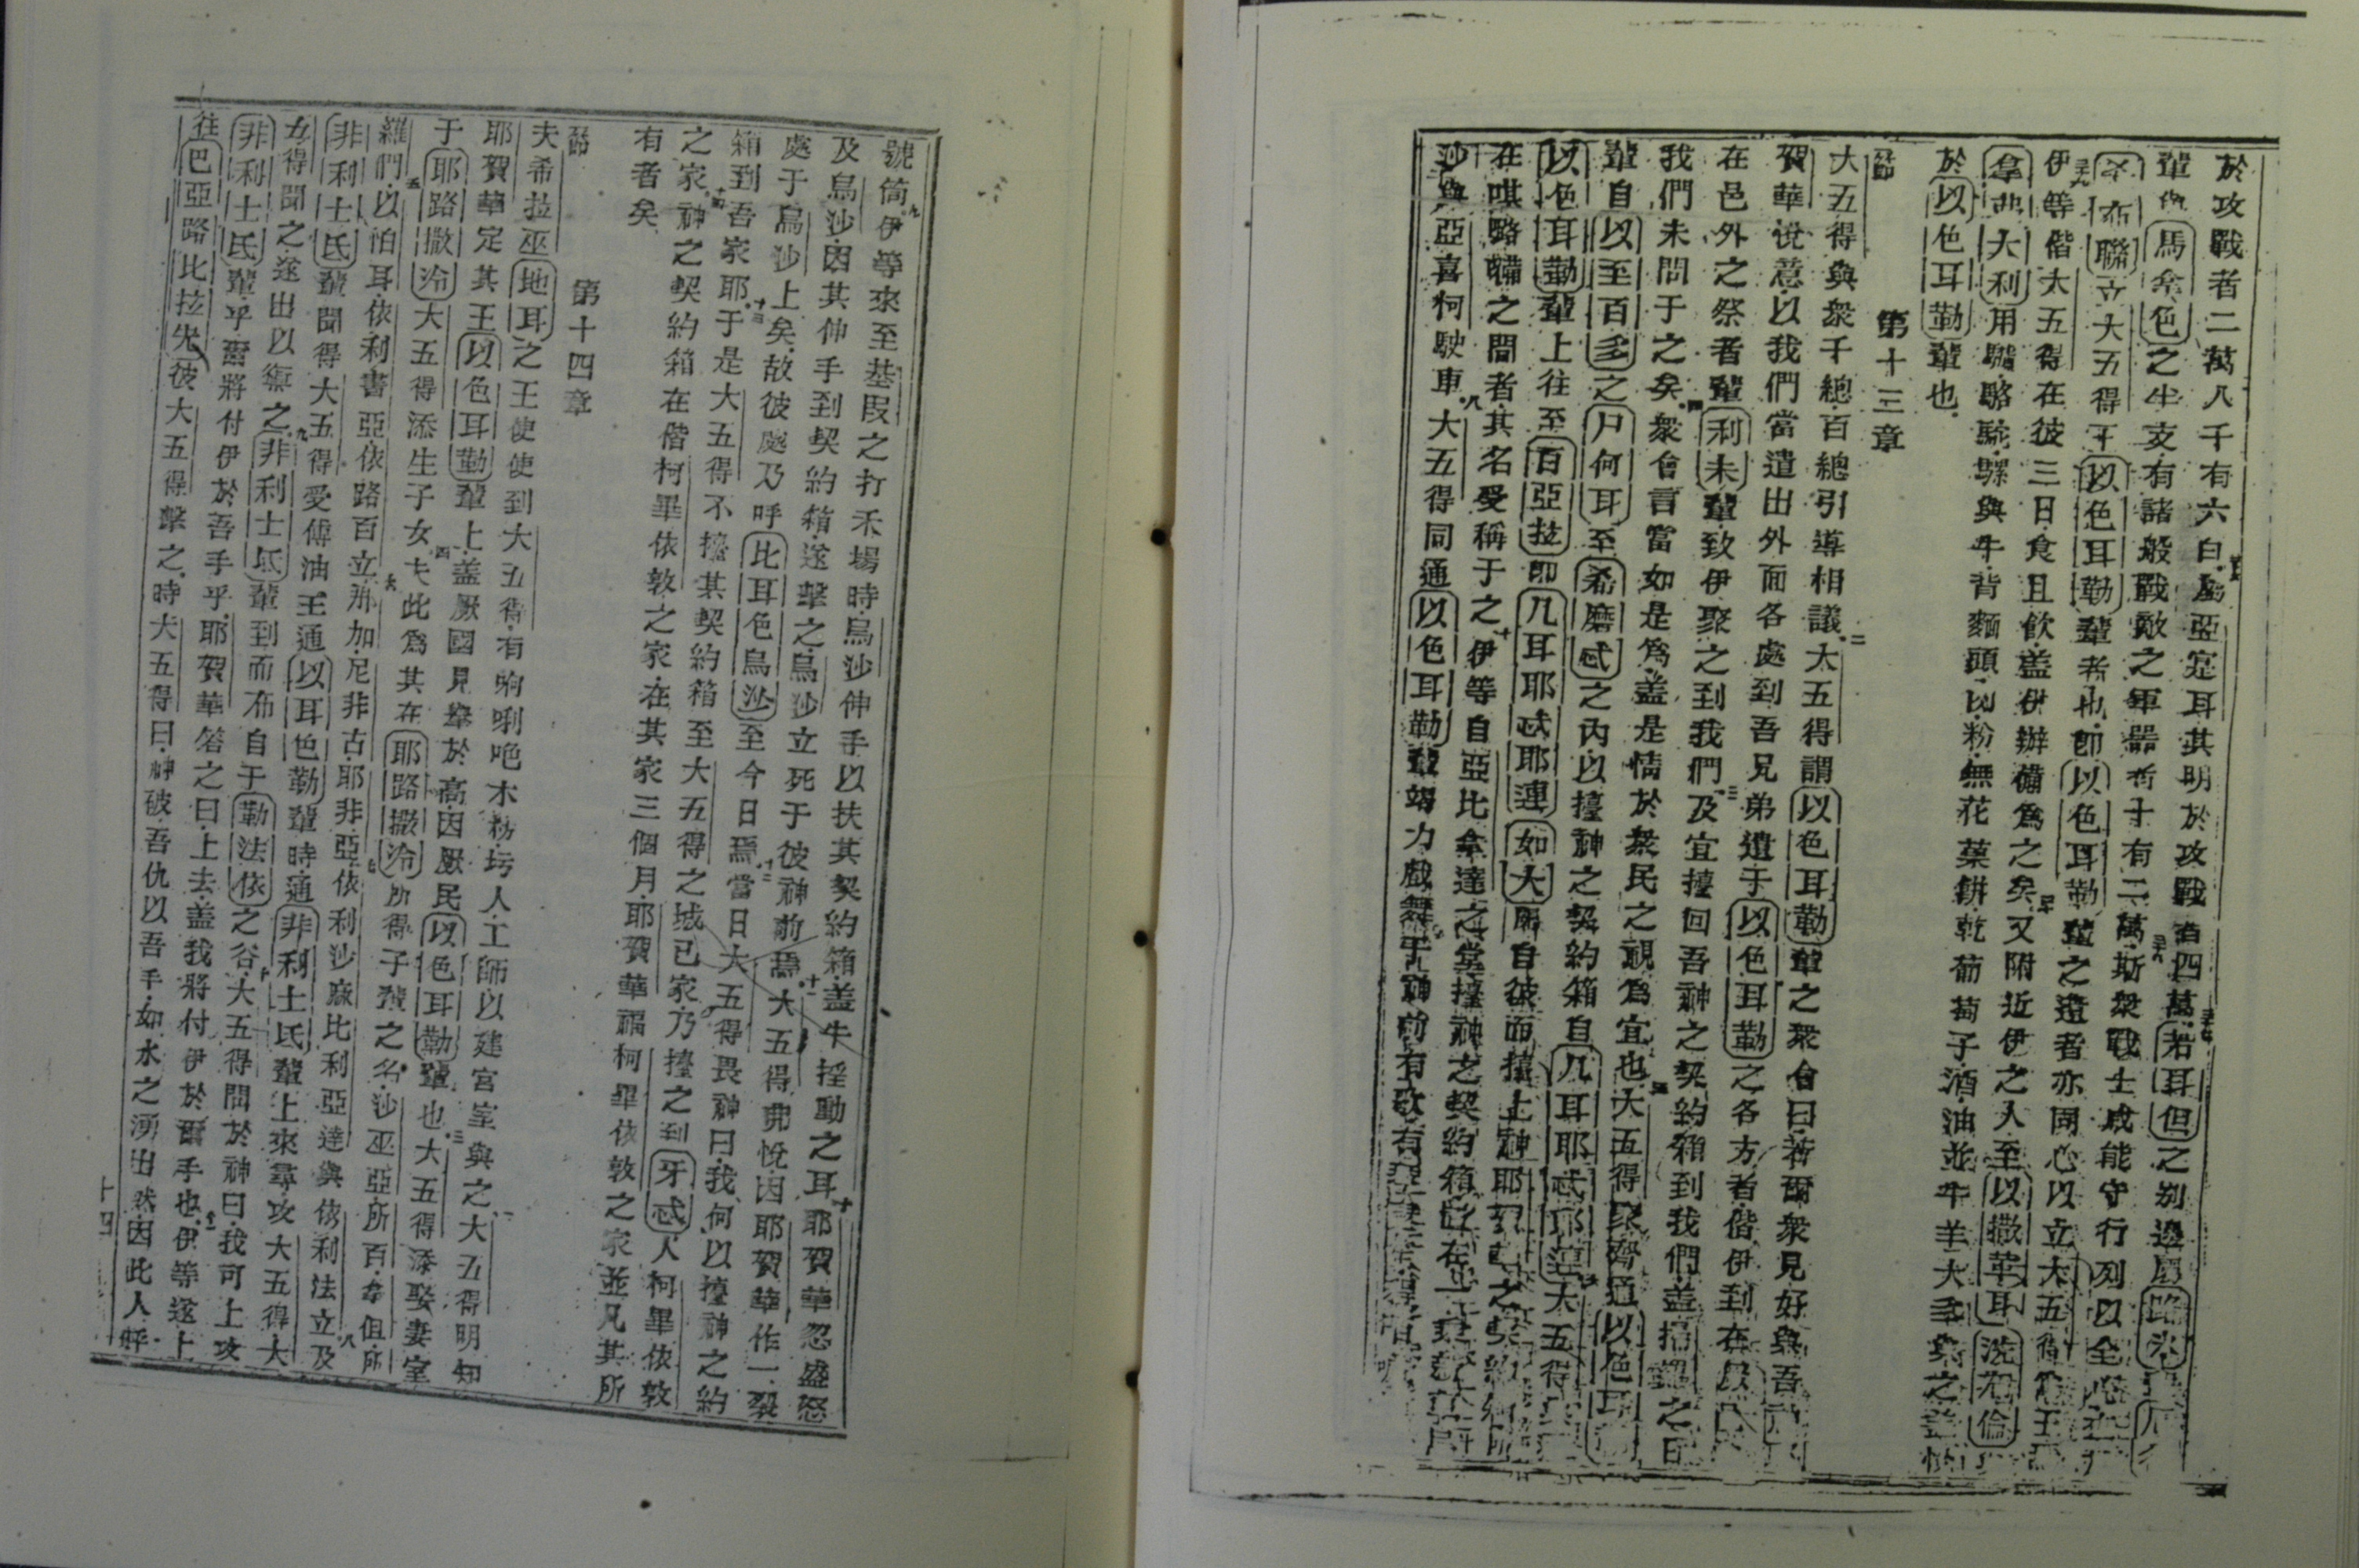 於攻戰者二萬八千有六百屬亞寔耳其明於攻戰者四萬若耳但之別邊屬路
輩與馬拿色之半支有諸般戰敵之軍器者十有二萬斯衆戰士咸能守行列以全心
希布聯立大五得王以色耳勒輩者也即以色耳勒輩之遺者亦同心以立大五得爲王
伊等偕大五得在彼三日食且飲盖伊辦備爲之矣又附近伊之人至以撒革耳洗布倫
拿弗大利用驢駱駝騾與牛背麵頭以粉無花菓餅乾葡萄子酒油並牛羊大多與之盖
於以色耳勒輩也
第十三章
節
大五得與衆千總百總引導相議二大五得謂以色耳勒輩之衆會曰若爾衆見好與吾
賀華悅意以我們當遣出外面各處到吾兄弟遺于以色耳勒之各方者偕伊到在
在邑外之祭者輩利未輩致伊聚之到我們三及宜擡回吾神之契約箱到我們盖掃羅之日
我們未問于之矣四衆會言當如是爲盖是情於衆民之視爲宜也五大五得聚齊通以色耳
輩自以至百多之尸何耳至希磨忒之內以擡神之契約箱自几耳耶忒耶連六大五得
以色耳勒輩上往至百亞拉即几耳耶忒耶連如大屬自彼而擡上神耶賀華之契約箱
在𠵽路囀之間者其名受稱于之七伊等自亞比拿達之堂擡神之契約箱
沙與亞喜柯駛車八大五得同通以色耳勒輩竭力戲舞于神前有歌有
號筒九伊等來至基叚之打禾場時烏沙伸手以扶其契約箱盖牛㨱動之耳十耶賀華忽盛怒
及烏沙因其伸手到契約箱遂擊之烏沙立死于彼神前焉十一大五得弗悅因耶賀華作一裂
處于烏沙上矣故彼處乃呼比耳色烏沙至今日焉十二當日大五得畏神曰我何以擡神之約
箱到吾家耶十三于是大五得不擡其契約箱至大五得之城已家乃擡之到牙忒人柯畢依敦
之家十四神之契約箱在偕柯畢依敦之家在其家三個月耶賀華福柯畢依敦之家並凡其所
有者矣
第十四章
節
夫希拉巫地耳之王使使到大五得有啲唎吧木粉圬人工師以建宮室與之二大五得明知
耶賀華定其王以色耳勒輩上盖厥國見舉於高因厥民以色耳勒輩也三大五得添娶妻室
于耶路撒冷大五得添生子女四夫此爲其在耶路撒冷所得子輩之名沙巫亞所百拿但所
羅們五以怕耳依利書亞依路百立六那加尼非古耶非亞七依利沙麻比利亞達與依利法立八及
非利士氏輩聞得大五得受傅油王通以耳色勒輩時通非利士氏輩上來尋攻大五得大
五得聞之遂出以禦之九非利士氐輩到而布自于勒法依之谷十大五得問於神曰我可上攻
非利士氏輩乎爾將付伊於吾手乎耶賀華答之曰上去盖我將付伊於爾手也十一伊等遂上
往巴亞路比拉先彼大五得擊之時大五得曰神破吾仇以吾手如水之湧出然因此人呼
十四